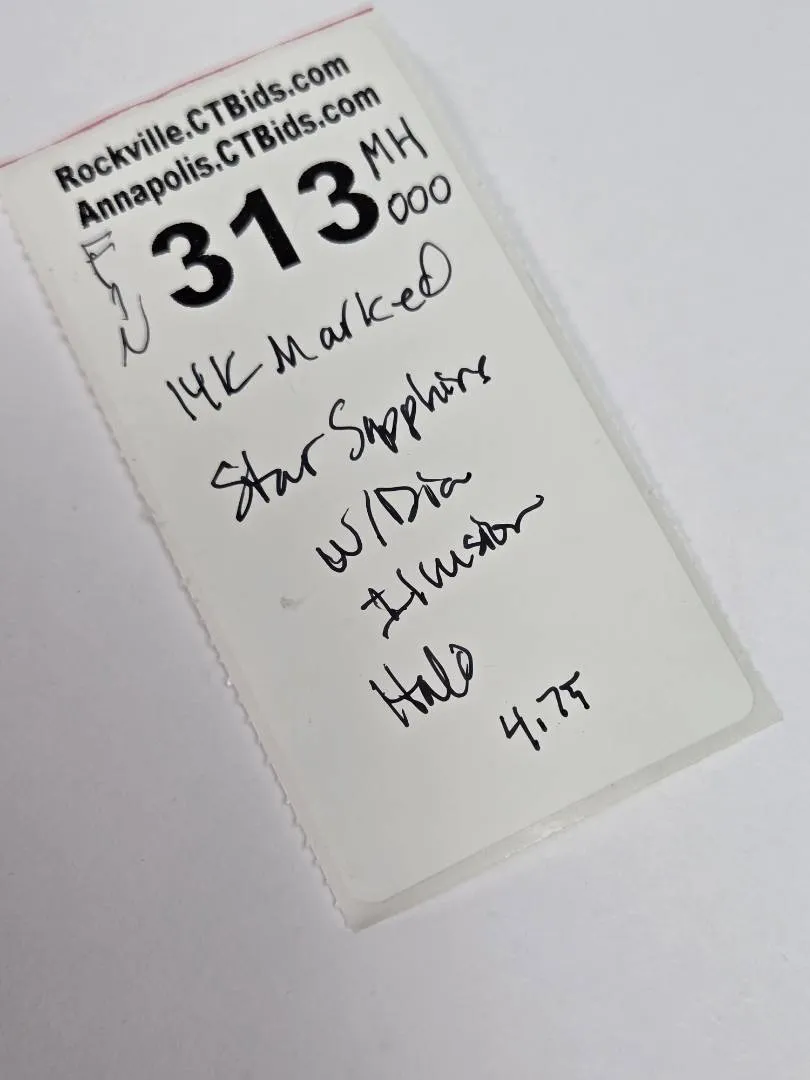 Rockville.CTBids.com
Annapolis.CTBids.com
313 MH
000
14K Marked
Star Sapphire
W/Dia
Illusion
Halo
4.75